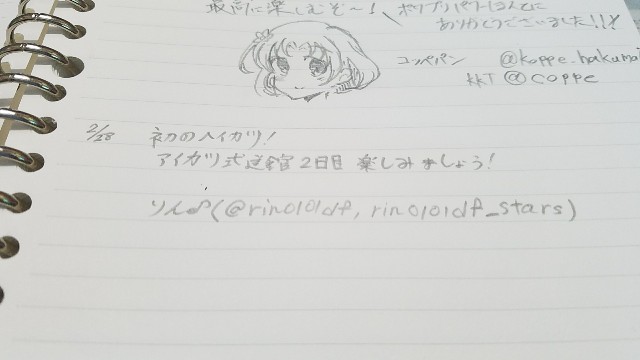 最高に楽しむぞ～！
ポリプリパケしほんとに
ありがとうございました!!!
コッペパン @koppe_hakumai
KKT@coppe
2/28 初のハイカツ!
アイカツ式合宿2日目 楽しみましょう!
りん♂(@rin0101df, rin0101df_stars)